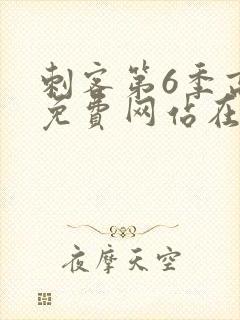 刺客第6季高
免費网佔在
夜摩天空